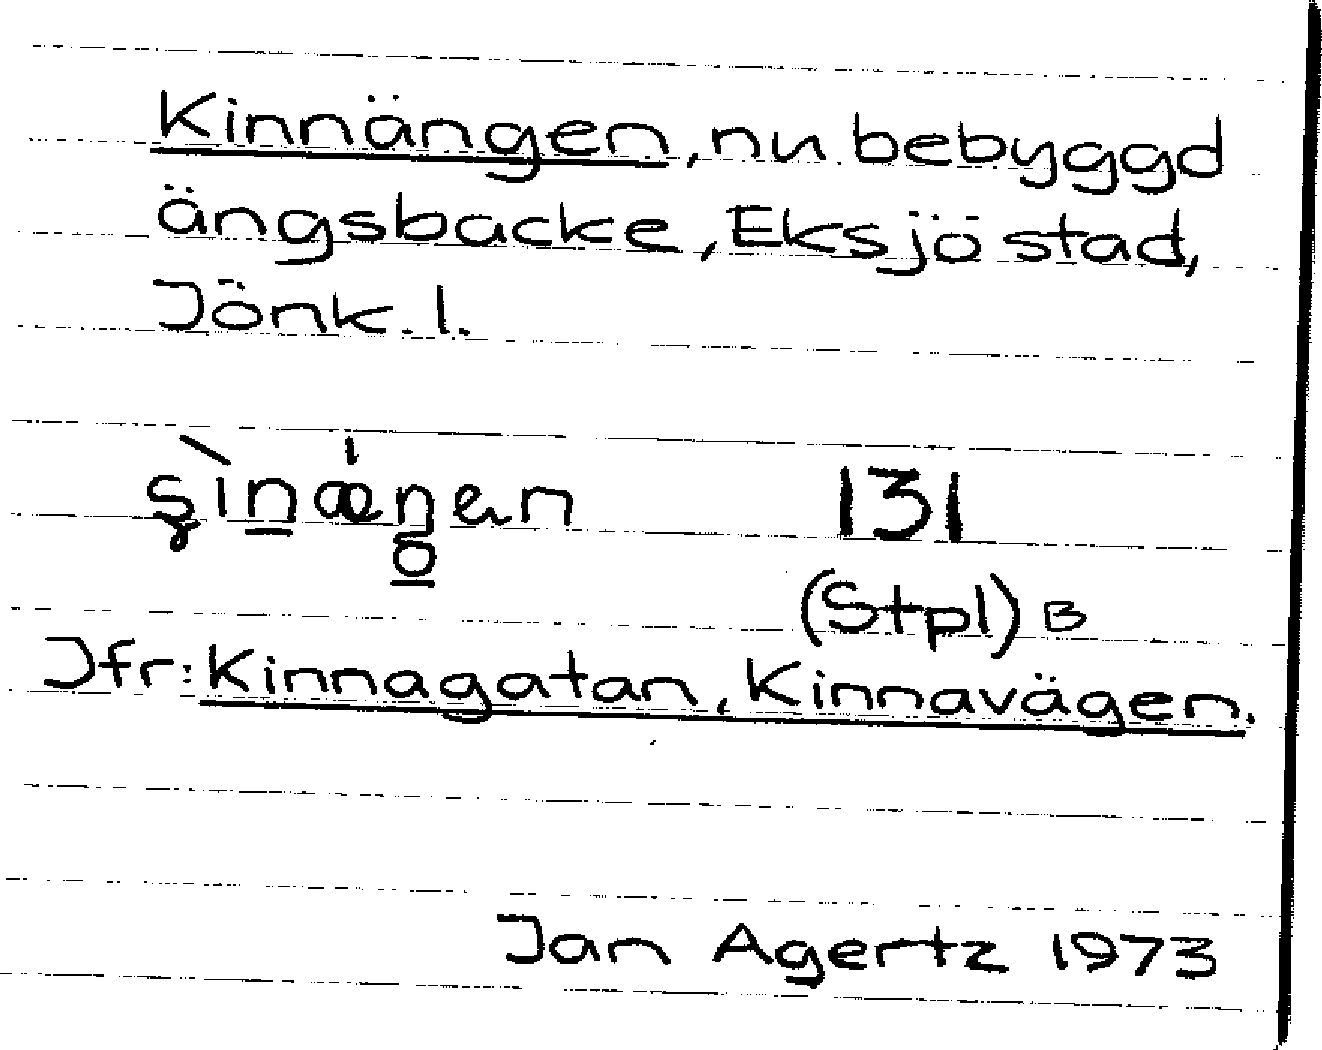 Kinnängen, nu bebyggd
ängsbacke, Eksjö stad,
Jönk. l.
131
(Stpl) B
Jfr: Kinnagatan, Kinnavägen.
Jan Agertz 1973